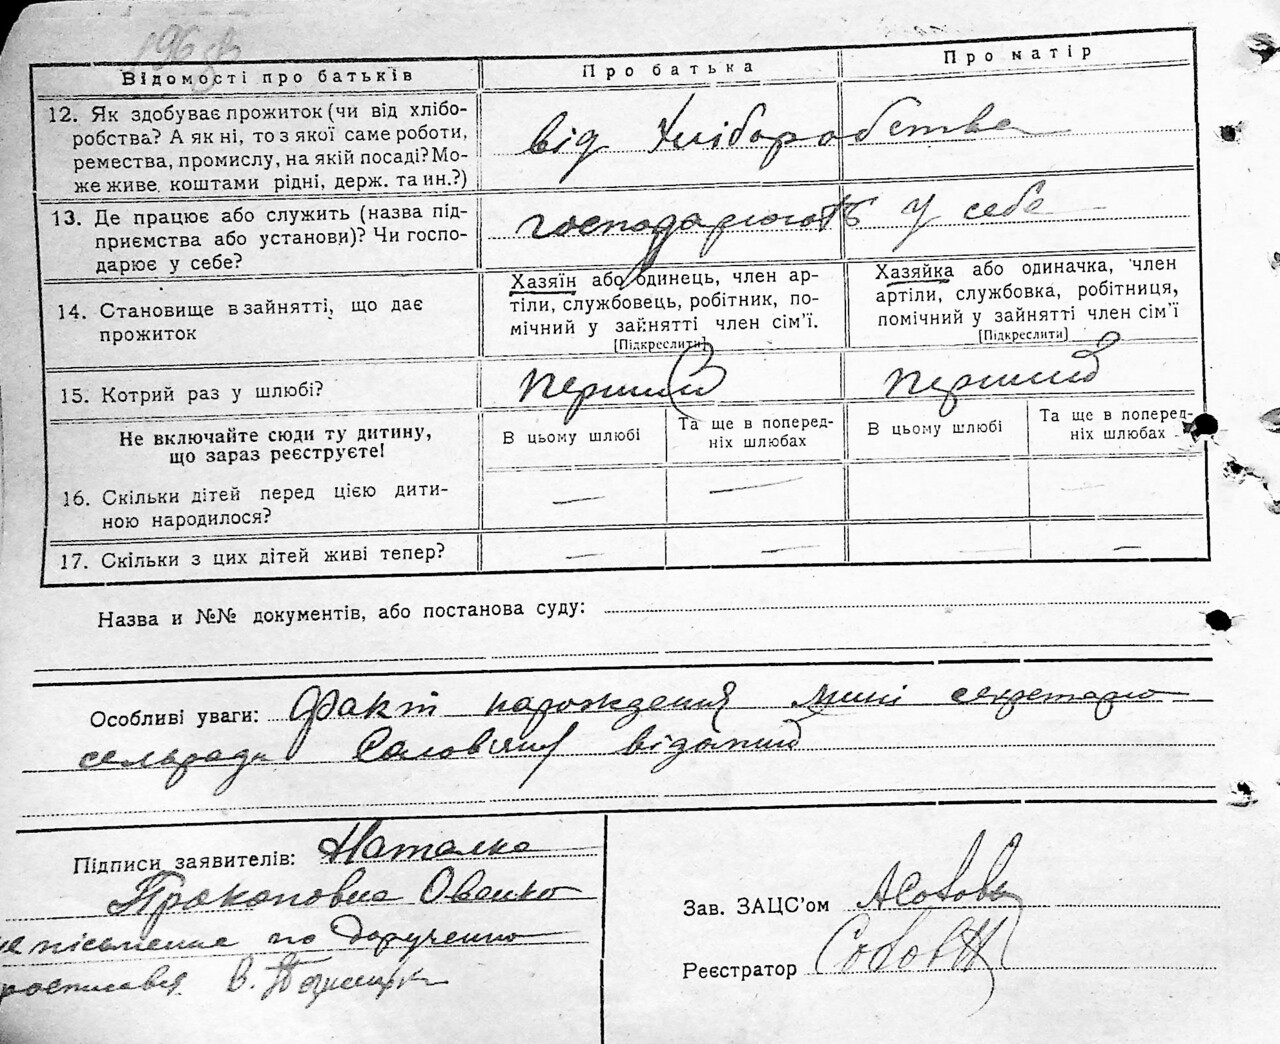 Відомості про батьків
Про батька
Про матір
12. Як здобуває прожиток (чи від хлібо-
робства? А як ні, то з якої саме роботи,
ремества, промислу, на якій посаді? Мо-
же живе коштами рідні, держ. та ин.?)
від хліборобства
13. Де працює або служить (назва під-
приємства або установи)? Чи госпо-
дарює у себе?
господарюють у себе
14. Становище в зайнятті, що дає
прожиток
Хазяїн або одинець, член ар-
тіли, службовець, робітник, по-
мічний у зайнятті член сім'ї.
[Підкреслити]
Хазяйка або одиначка, член
артіли, службовка, робітниця,
помічний у зайнятті член сім'ї
[Підкреслити]
15. Котрий раз у шлюбі?
перший
перший
Не включайте сюди ту дитину,
що зараз реєструєте!
В цьому шлюбі
Та ще в поперед-
ніх шлюбах
В цьому шлюбі
Та ще в поперед-
ніх шлюбах
16. Скільки дітей перед цією дити-
ною народилося?
— —
17. Скільки з цих дітей живі тепер?
— — — —
Назва и №№ документів, або постанова суду:
Особливі уваги: Факт нарождения мині секретарю
сельради відомий
Підписи заявителів: Наталка
Прокоповна Овенко
неписьменна по дорученню
росписався В.
Зав. ЗАЦС'ом
Реєстратор